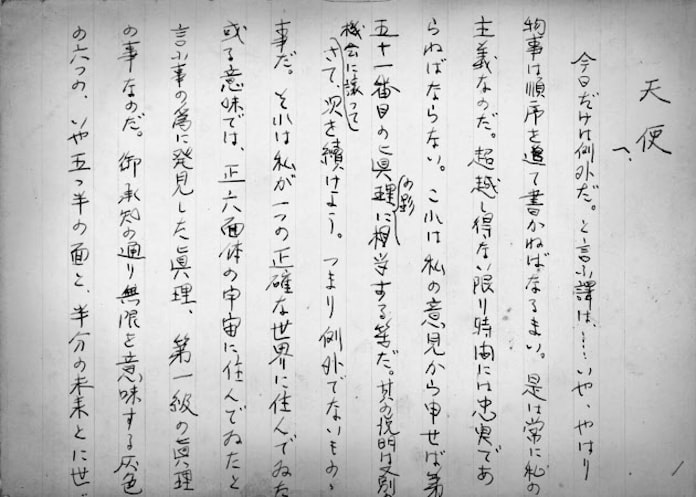 天使
今日だけは例外だ。と言ふ譯は、……いや、やはり
物事は順序を追て書かねばなるまい。是は常に私の
主義なのだ。超越し得ない限り時間には忠実であ
らねばならない。これは私の意見から申せば第
五十一番目の眞理の影に相当する筈だ。其の説明は又別
機会に譲って
さて、次を續けよう。つまり例外でないものゝ
事だ。それは私が一つの正確な世界に住んでゐた
或る意味では、正六面体の宇宙に住んでゐたと
言ふ事の為に発見した眞理、第一級の眞理
の事なのだ。御承知の通り無限を意味する灰色
の六つの、いや五つ半の面と、半分の未来とに世